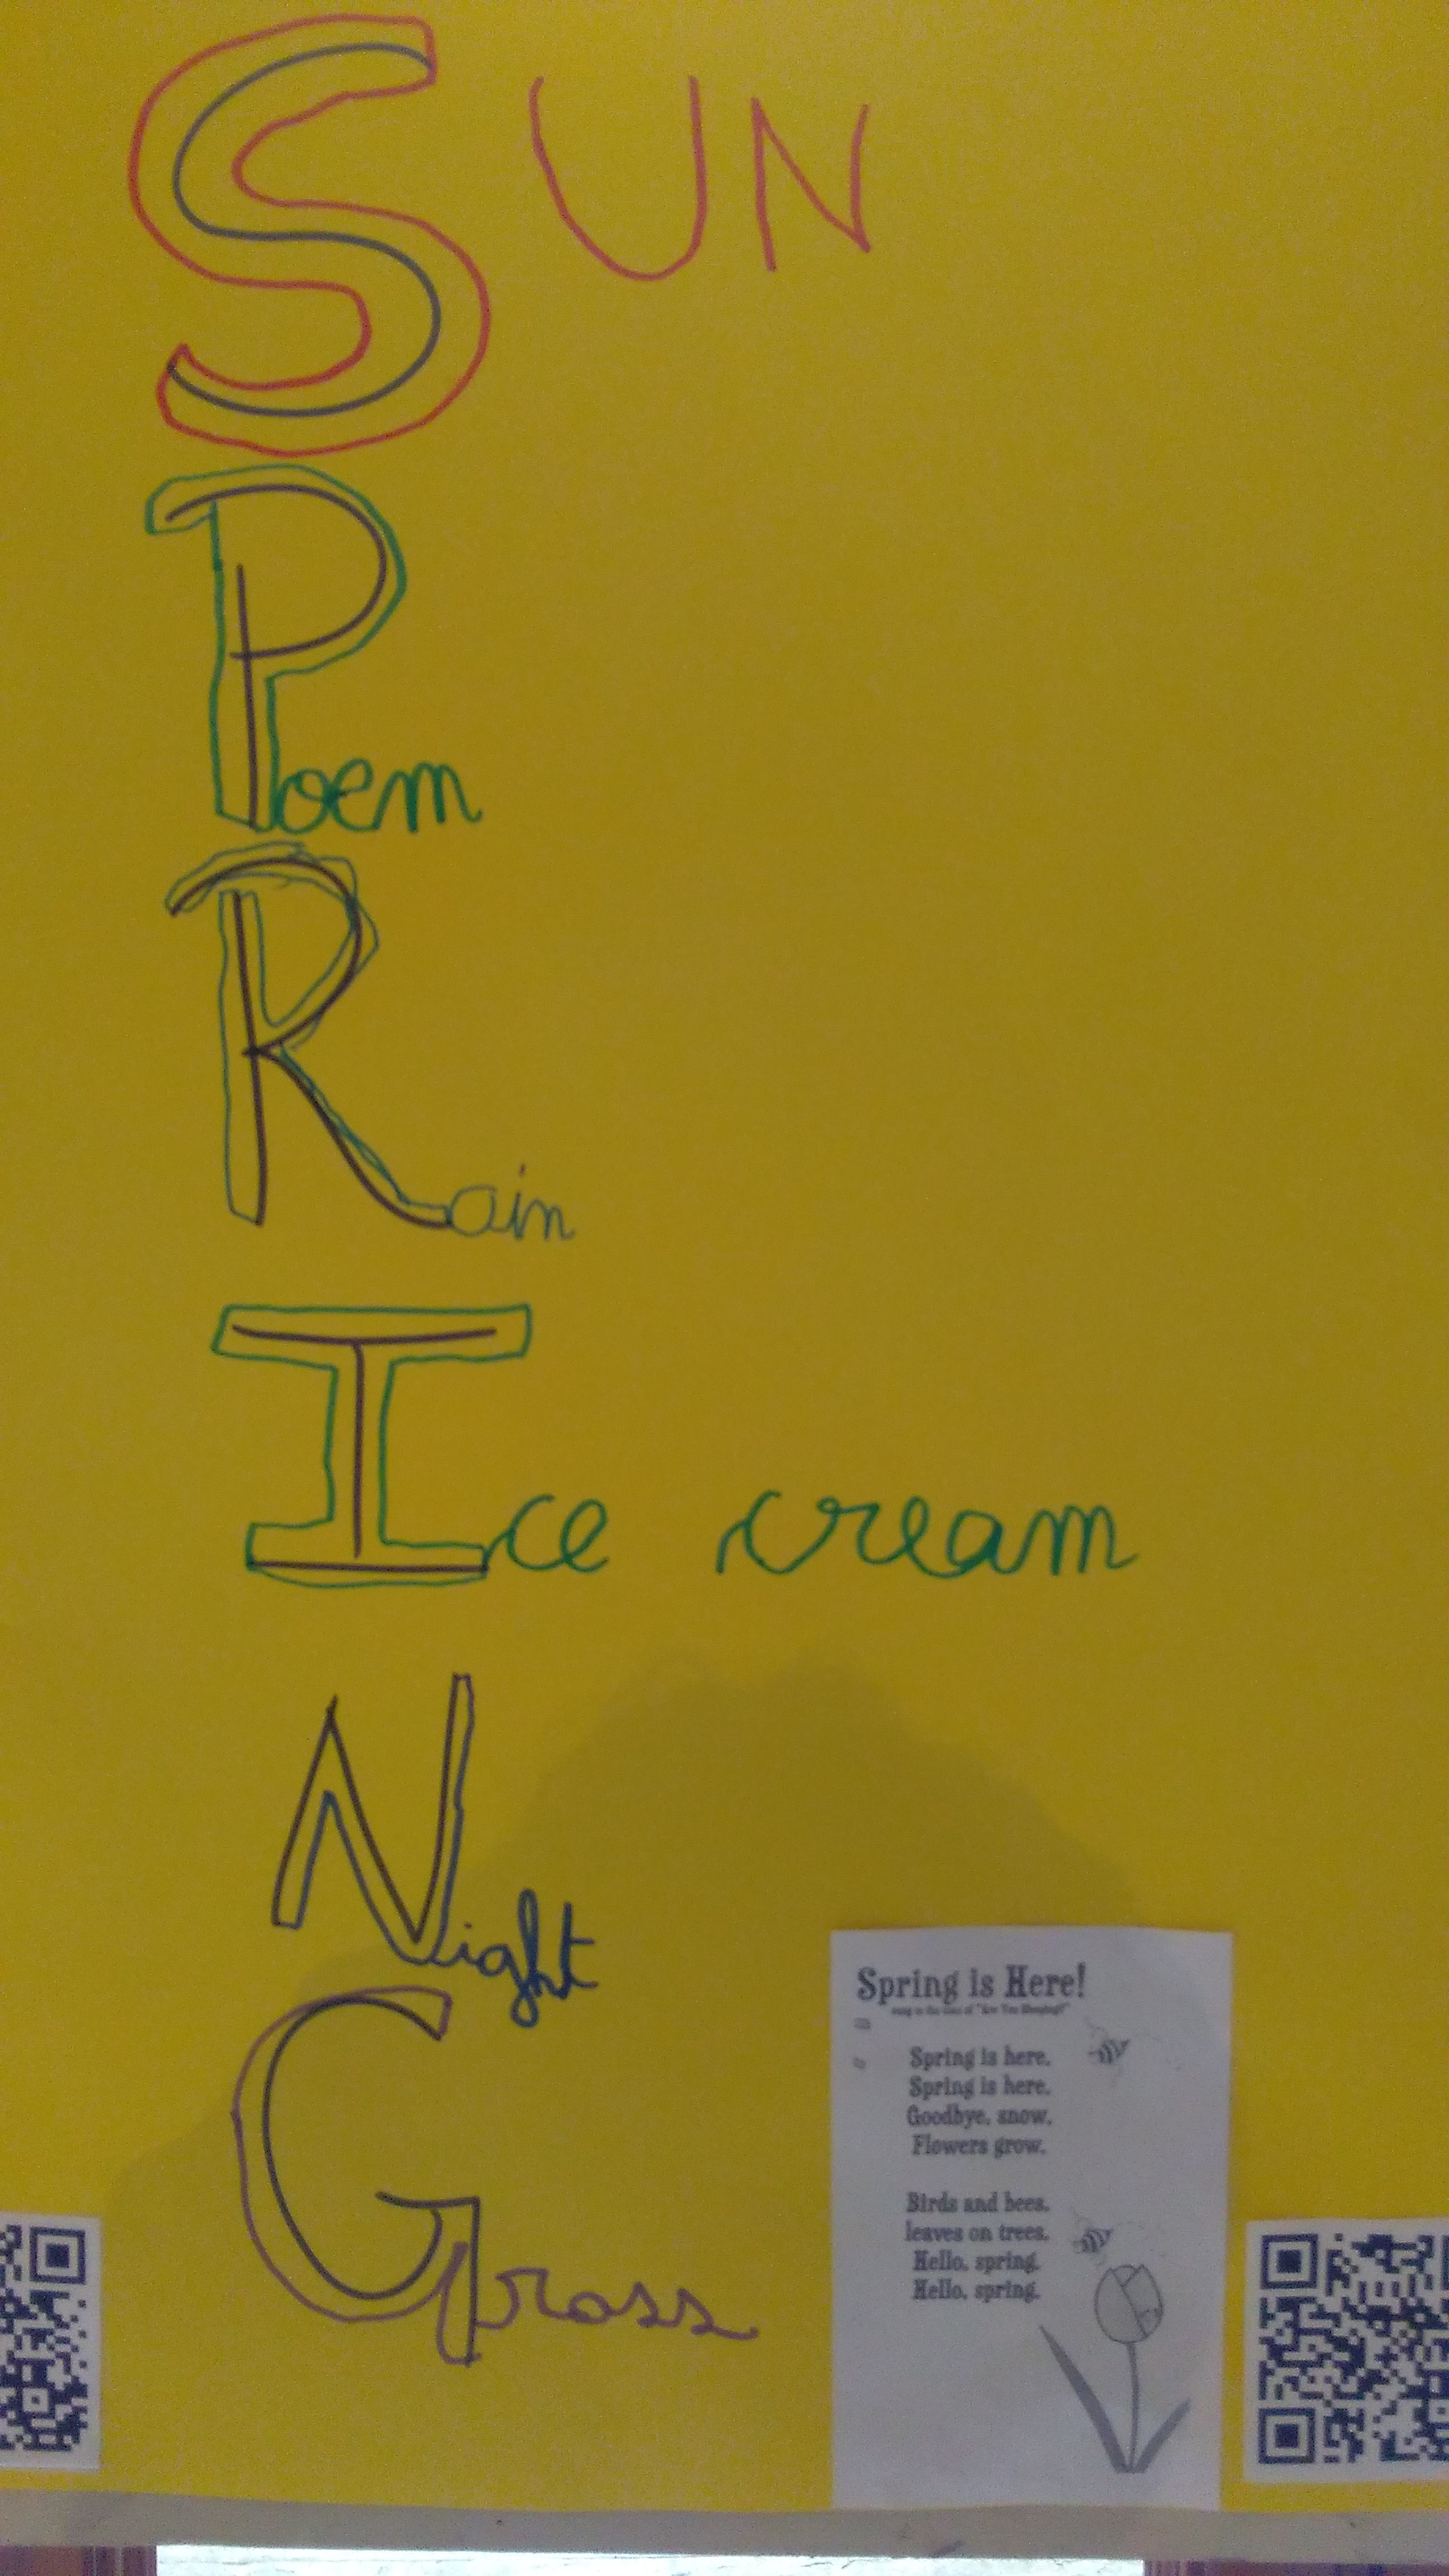 SUN
Poem
Rain
Ice cream
Night
Grass
Spring is Here!
sung to the tune of "Are You Sleeping?"
Spring is here.
Spring is here.
Goodbye, snow.
Flowers grow.
Birds and bees,
leaves on trees.
Hello, spring.
Hello, spring.